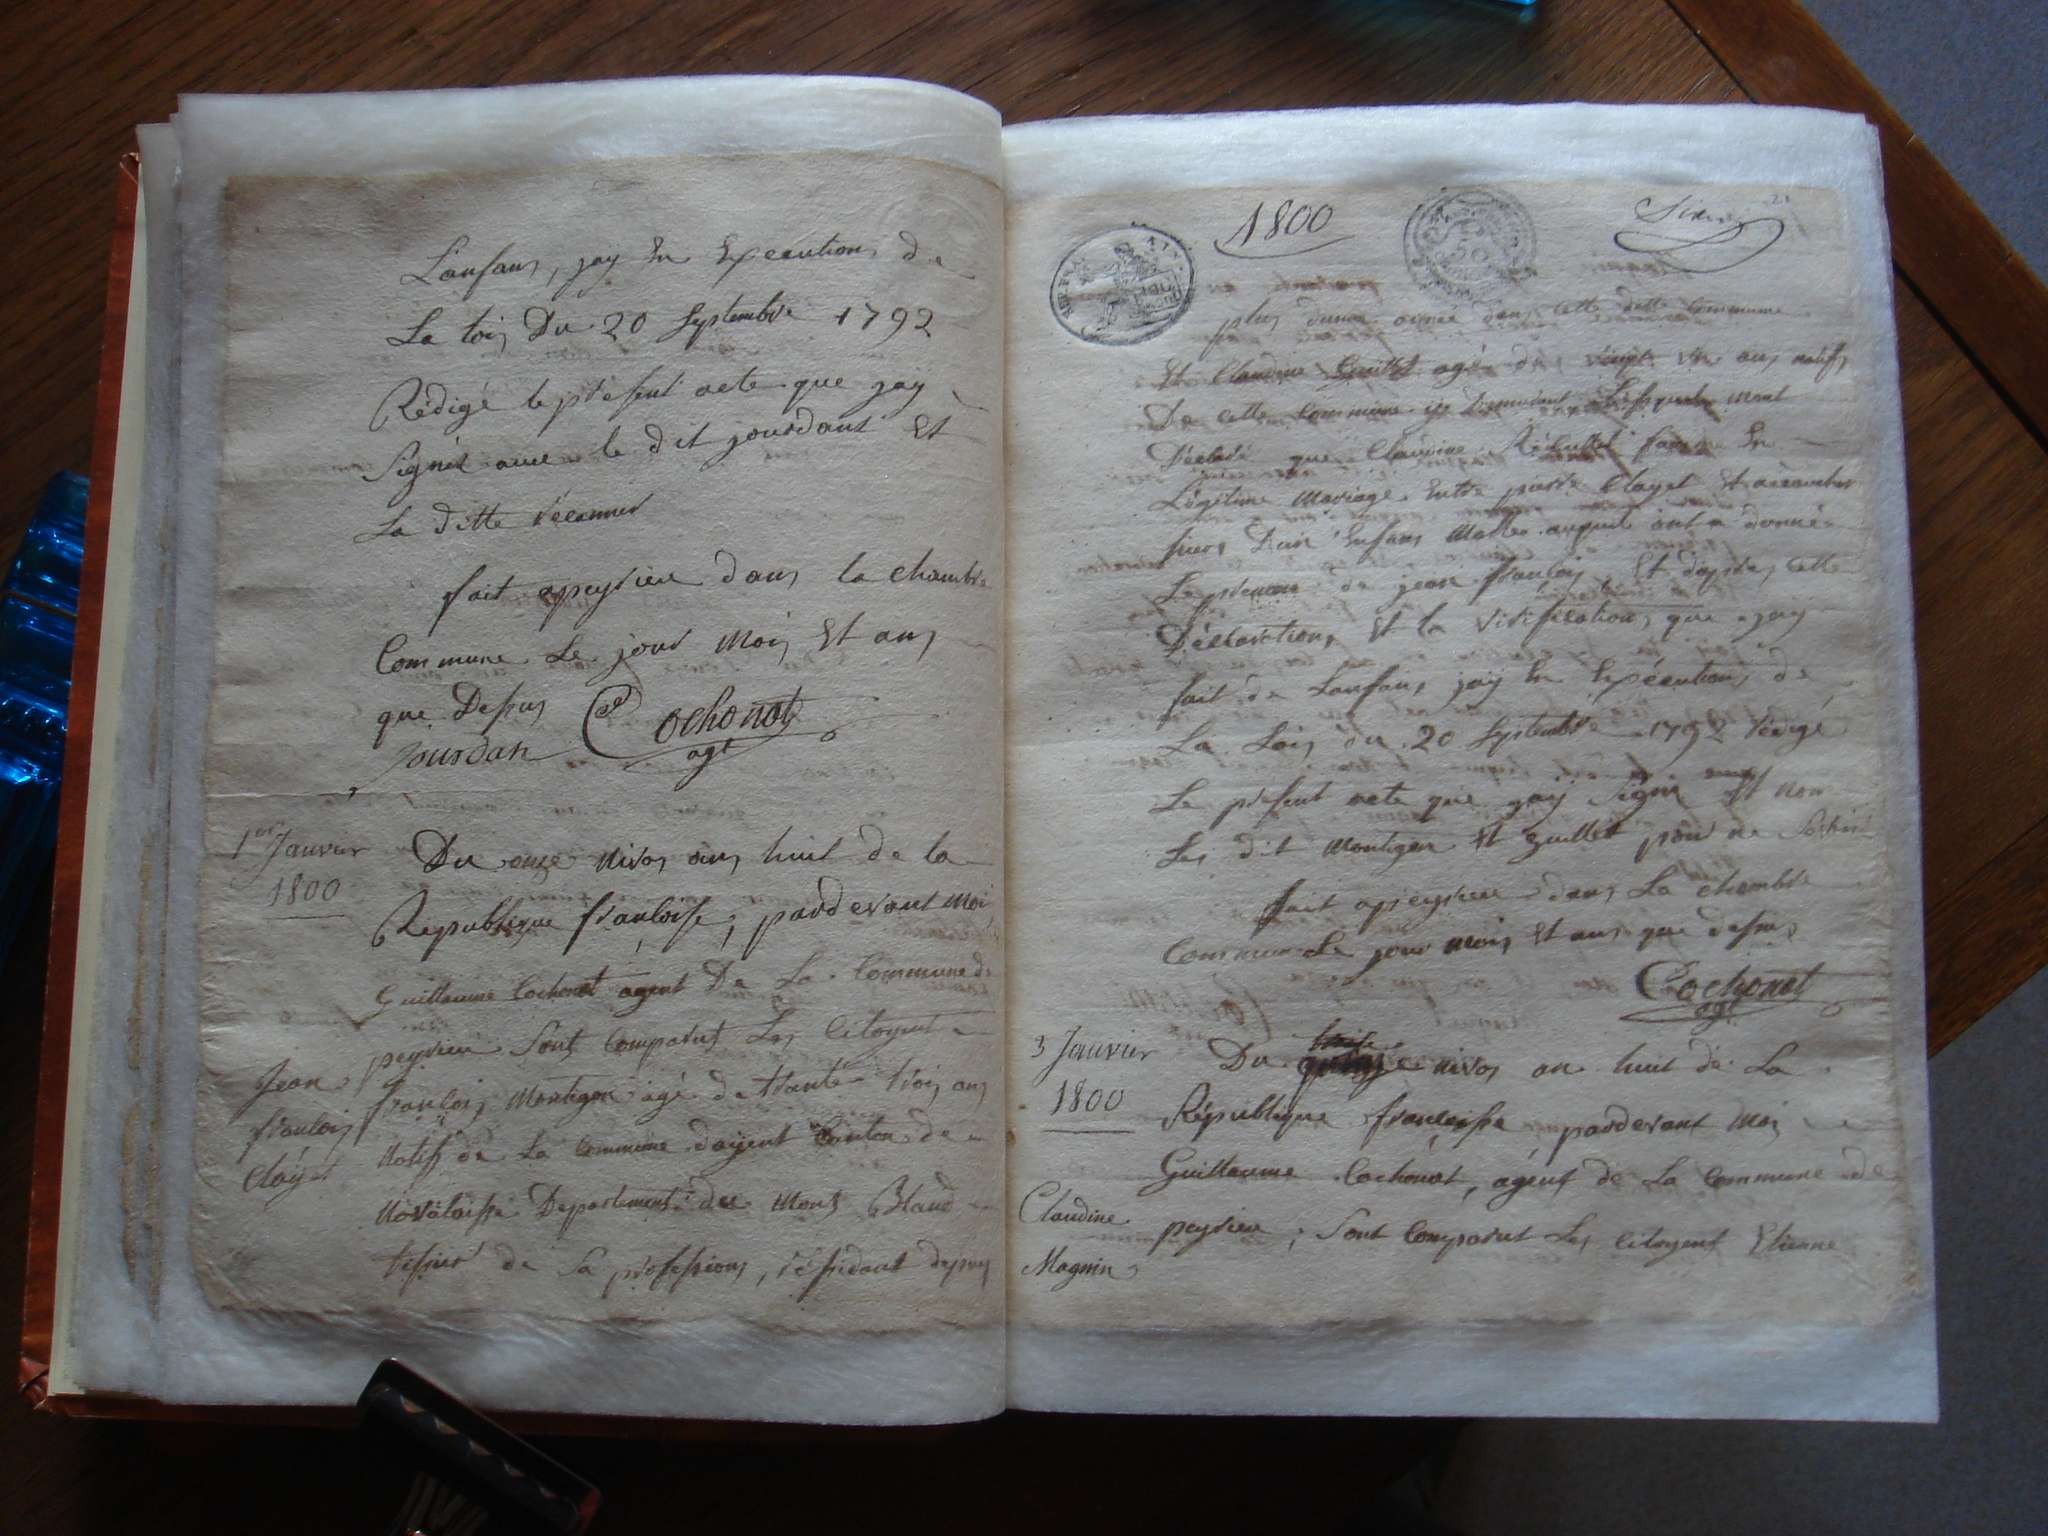 L'anfans, jay En Execution de
La loix Du 20 Septembre 1792
Rédigé le présent acte que jay
Signés avec le dit jourdant Et
La ditte récamier
fait apeyrieu dans la Chambre
Commune Le jour Mois Et ans
que Desus Cochonat
Jourdan agt
1er Janvier
1800
Du onze Nivos ans huit de la
Republique françoise, pardevant Moi
Guillaume Cochonat agent De La Commune de
peyrieu Sont Comparut Les Citoyent
Jean
françois
Clayet
françois Montigon agé de trante trois ans
Natif de La Commune dayent Canton de
Novalaisse Departement du Mont Bland
tisseur de Sa profession, résidant depuis
1800
plus dune année dans cette ditte Commune
Et Claudine Guillet agé de vingt un ans natifs
De cette Commune y Demeurant Lesquels mont
Déclaré que Claudine
Légitime Mariage Entre pierre Clayet Et
dun Enfans Malle auquel ont a donné
Le prenom de jean françois Et dapres cette
Déclaration Et la Vérification que jay
fait de Lanfans jay En Exécution de
La Loix du 20 Septembre 1792 rédigé
Le présent acte que jay Signé Et non
Les dit Montigon Et guillet pour ne
fait apieyrieu dans La chambre
Commune Le jour mois Et ans que desus
Cochonat
agt
3 Janvier
1800
Du treise nivos an huit de La
République françoise pardevant Moi
Guillaume Cochonat, agent de La Commune de
Claudine
Magnin
peyrieu, Sont Comparut Les Citoyent Etienne